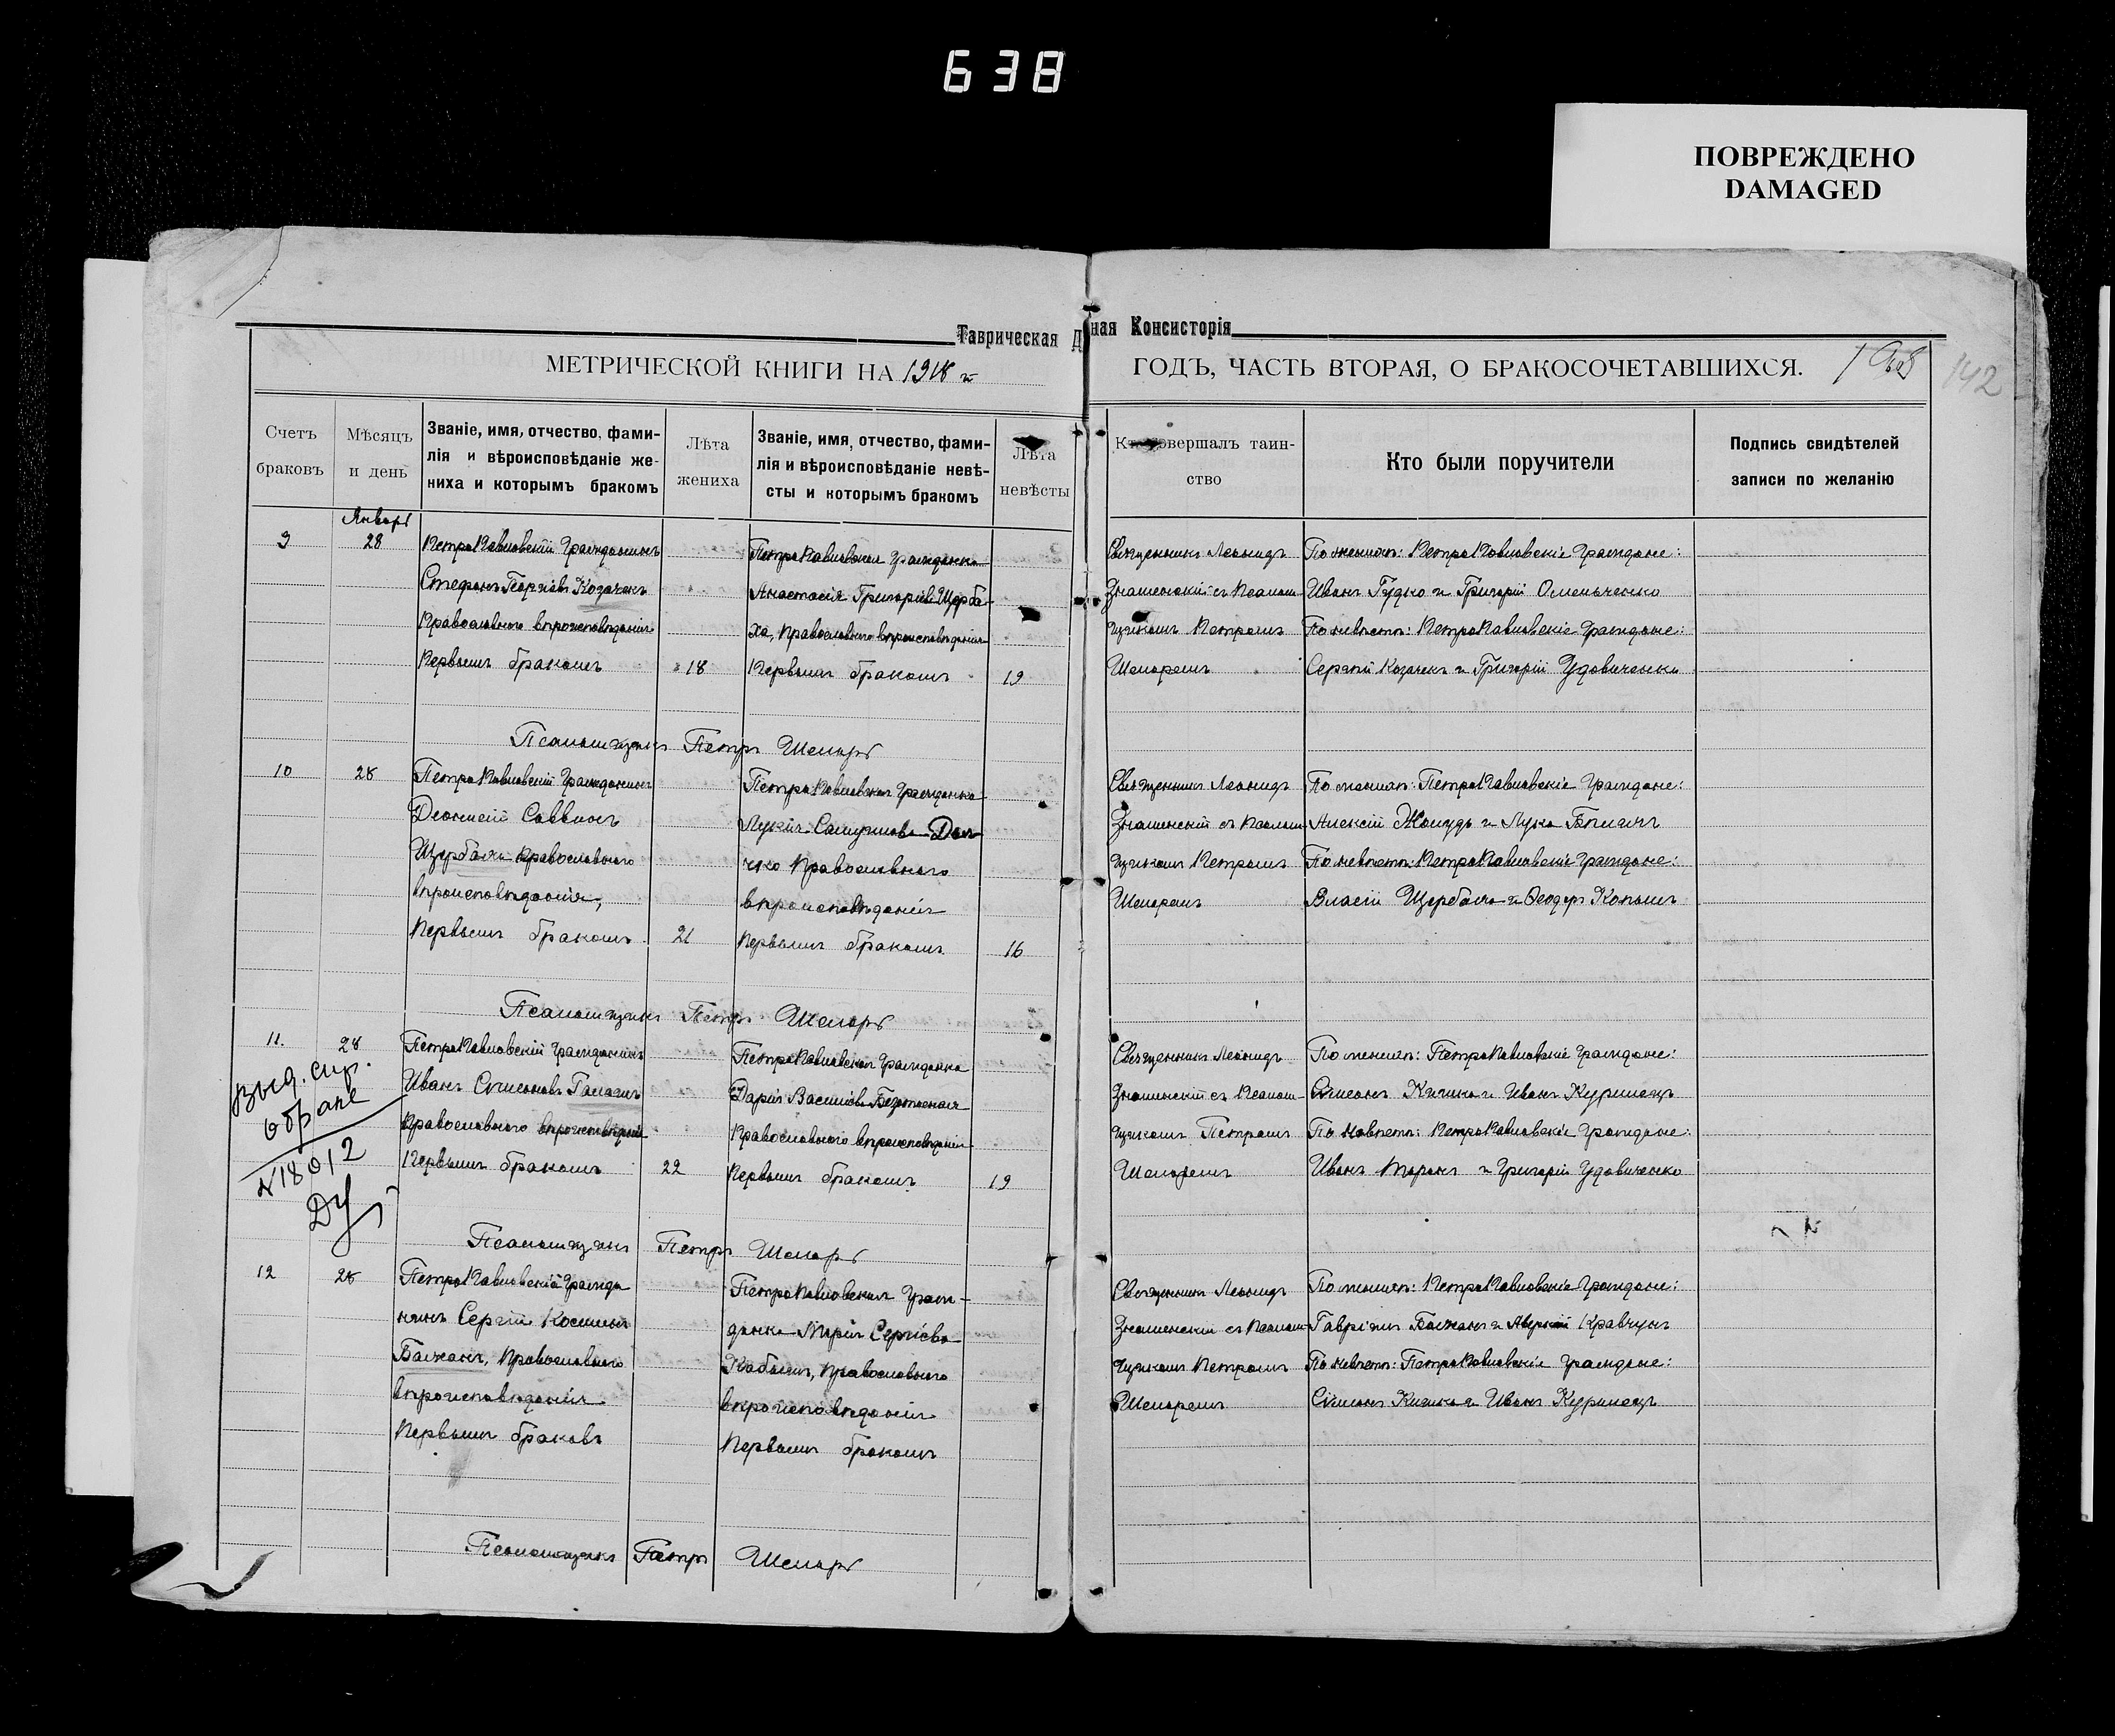 638
ПОВРЕЖДЕНО
DAMAGED
Таврическая Д ная Консисторія
МЕТРИЧЕСКОЙ КНИГИ НА 1918 г. ГОДЪ, ЧАСТЬ ВТОРАЯ, О БРАКОСОЧЕТАВШИХСЯ.
142
Счетъ браковъ
Мѣсяцъ и день
Званіе, имя, отчество, фами-
лія и вѣроисповѣданіе же-
ниха и которымъ бракомъ
Лѣта жениха
Званіе, имя, отчество, фами-
лія и вѣроисповѣданіе невѣ-
сты и которымъ бракомъ
Лѣта невѣсты
Кто совершалъ таин-
ство
Кто были поручители
Подпись свидѣтелей
записи по желанію
Январь
9 28
ПетроПавловскій Гражданинъ
Стефанъ Георгіевъ Козаченъ
Православнаго вѣроисповѣданія
Первымъ бракомъ 18
ПетроПавловская гражданка
Анастасія Григоріева Щерба-
ха, Православнаго вѣроисповѣданія
Первымъ бракомъ 19
Священникъ Леонидъ
Знаменскій съ Псалом-
щикомъ Петромъ
Шепаремъ
По женихѣ: ПетроПавловскіе Граждане:
Иванъ Гудко и Григорій Омельченко
По невѣстѣ: ПетроПавловскіе Граждане:
Сергій Козаченъ и Григорій Удовиченко
Псаломщикъ Петръ Шепарь
10 28
ПетроПавловскій Гражданинъ
Діонисій Саввинъ
Щербаха православнаго
вѣроисповѣданія,
Первымъ бракомъ 21
ПетроПавловская Гражданка
Лукія Самуилова
Православнаго
вѣроисповѣданія
Первымъ бракомъ 16
Священникъ Леонидъ
Знаменскій съ Псалом-
щикомъ Петромъ
Шепаремъ
По женихѣ: ПетроПавловскіе Граждане:
Алексій и Лука
По невѣстѣ: ПетроПавловскіе Граждане:
Власій Щербаха и Ѳеодоръ
Псаломщикъ Петръ Шепарь
11. 28
Выд. спр.
о браке
N 18012
ПетроПавловскій Гражданинъ
Иванъ Симеоновъ Галаганъ
Православнаго вѣроисповѣданія
Первымъ бракомъ 22
ПетроПавловская Гражданка
Дарія Василіева
Православнаго вѣроисповѣданія
Первымъ бракомъ 19
Священникъ Леонидъ
Знаменскій съ Псалом-
щикомъ Петромъ
Шепаремъ
По женихѣ: ПетроПавловскіе Граждане:
Симеонъ и Иванъ
По невѣстѣ: ПетроПавловскіе Граждане:
Иванъ Таранъ и Григорій Удовиченко
Псаломщикъ Петръ Шепарь
12 28
ПетроПавловскій Гражда
нинъ Сергій Косминъ
Балжанъ, Православнаго
вѣроисповѣданія
Первымъ браковъ
ПетроПавловская Граж-
данка Марія Сергіева
Православнаго
вѣроисповѣданія
Первымъ бракомъ
Священникъ Леонидъ
Знаменскій съ Псалом-
щикомъ Петромъ
Шепаремъ
По женихѣ: ПетроПавловскіе Граждане:
Гавріилъ Балжанъ и Аверкій Кравчунъ
По невѣстѣ: ПетроПавловскіе граждане:
Симеонъ и Иванъ
Псаломщикъ Петръ Шепарь